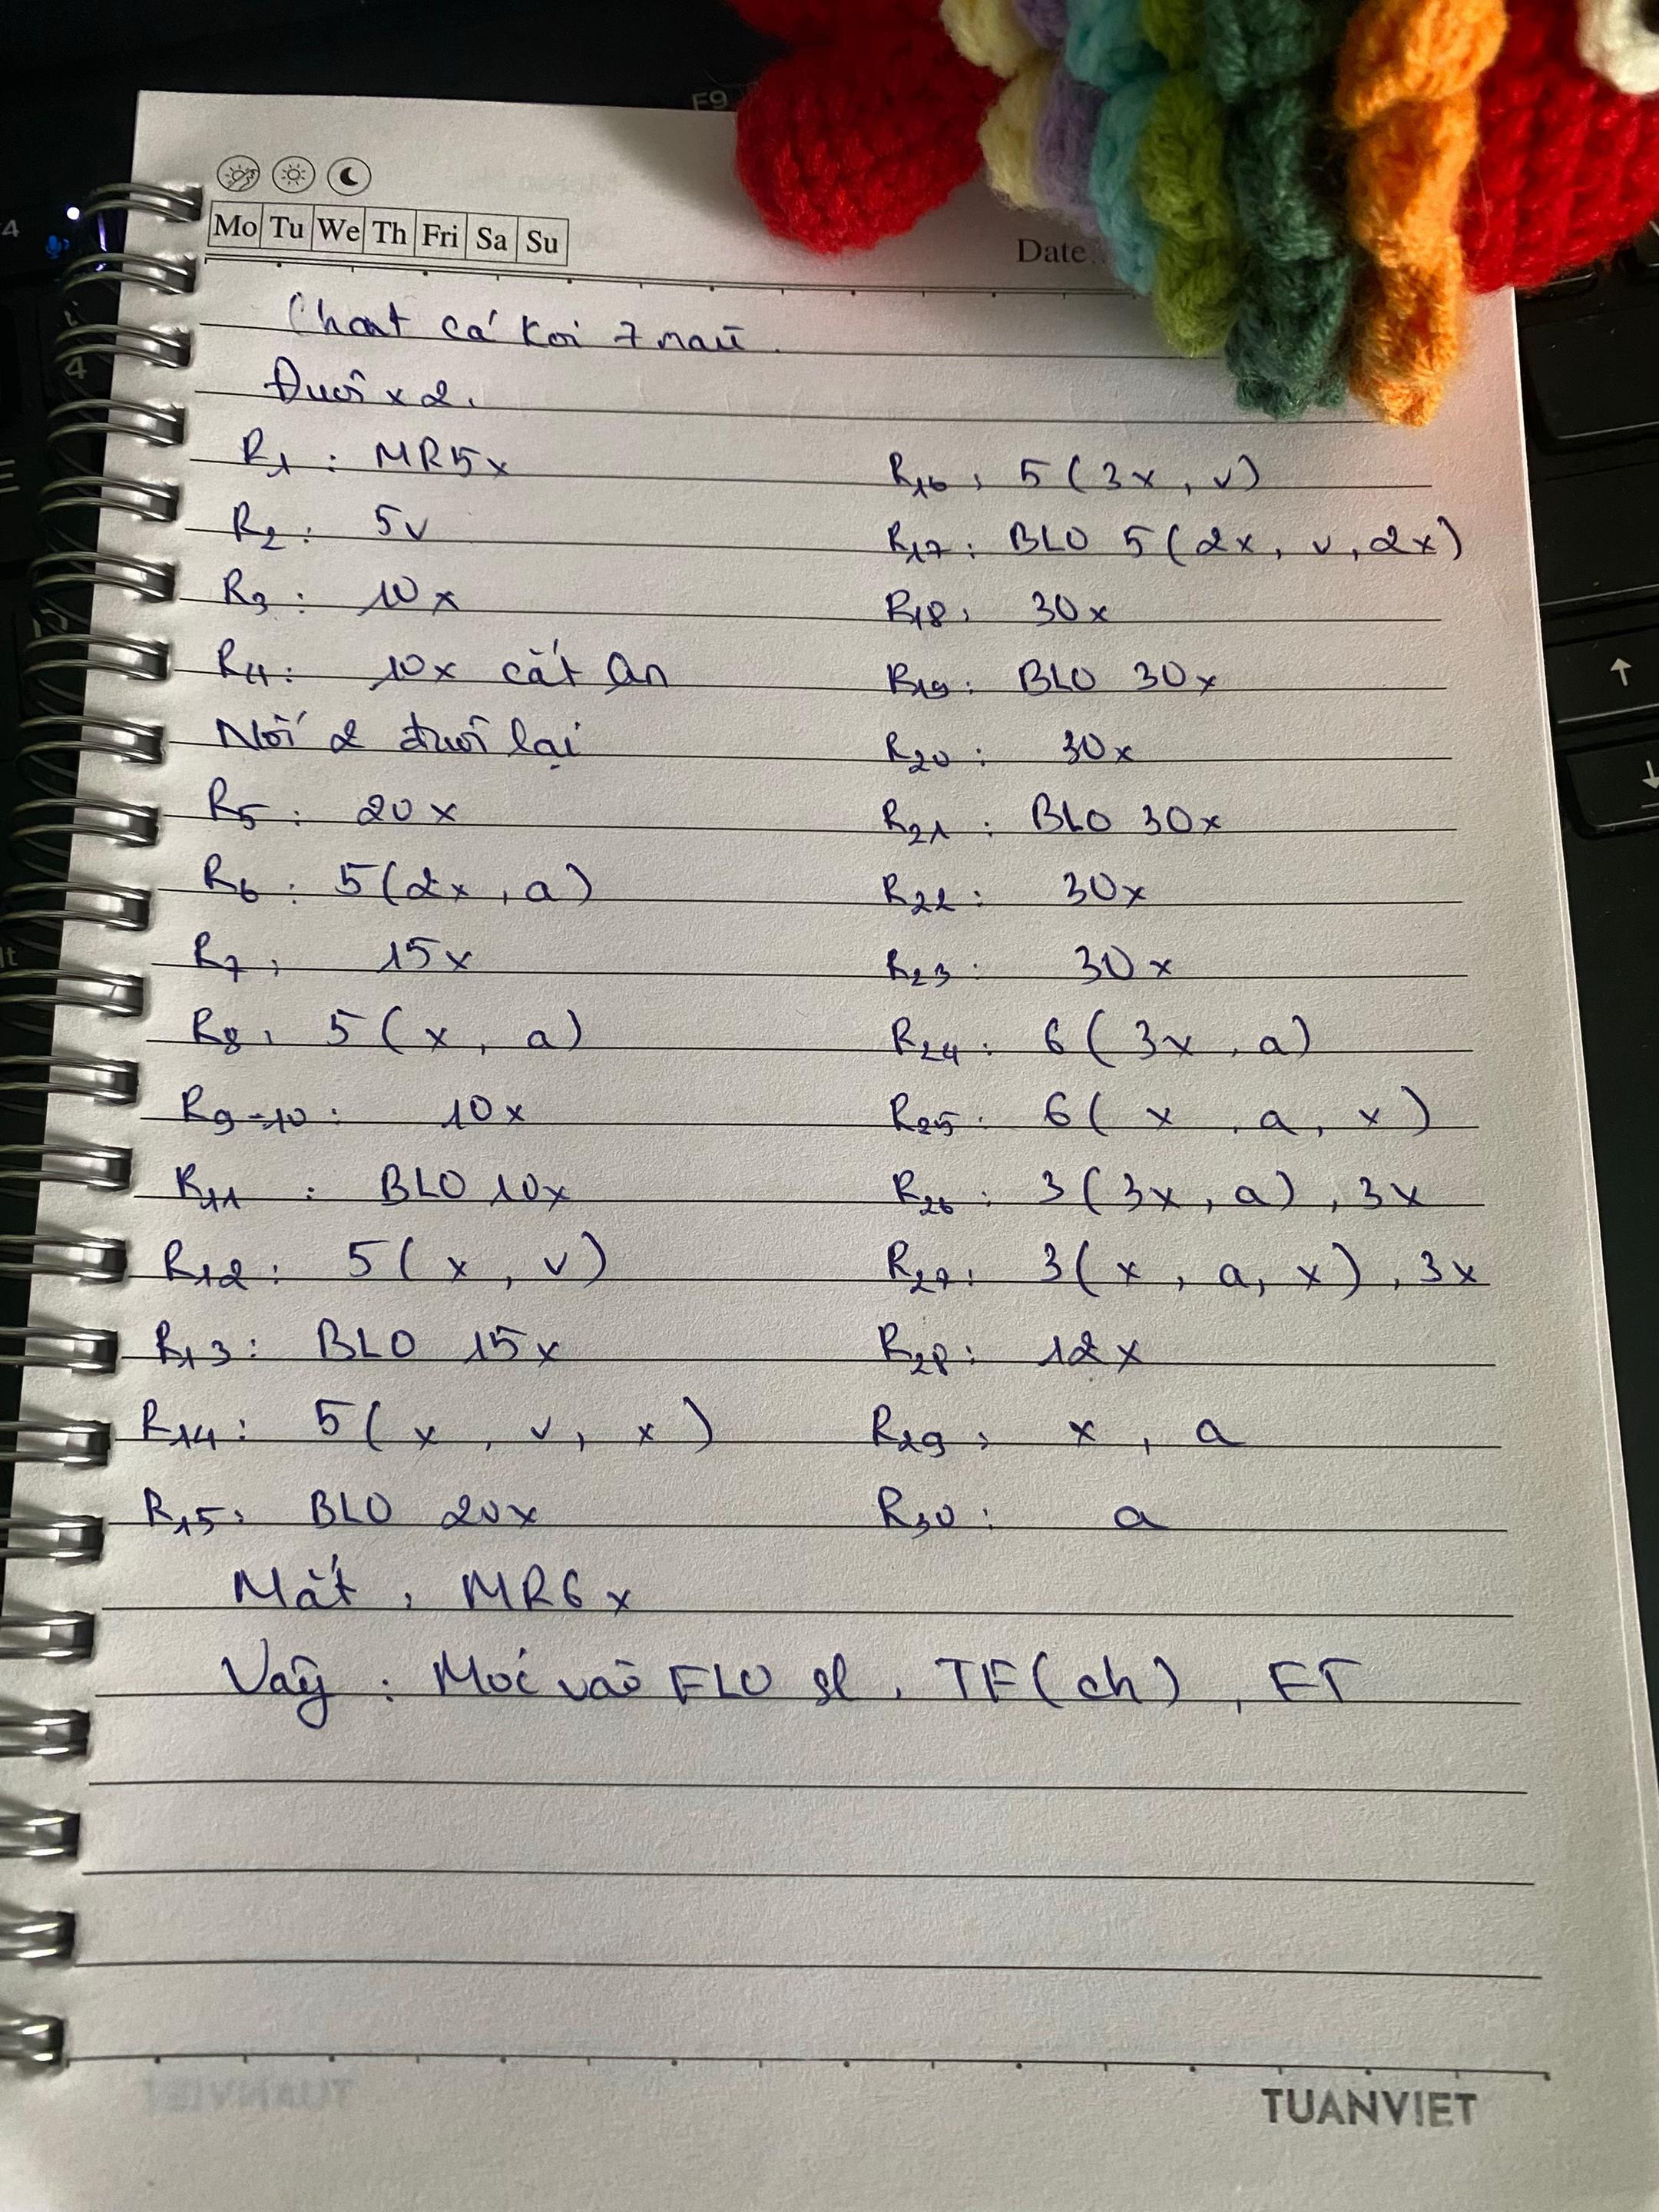 Mo Tu We Th Fri Sa Su
Date
Chart cá Koi 7 màu
Đuôi x 2.
R1 : MR5x
R2 : 5v
R3 : 10x
R4 : 10x cắt
Nối 2 đuôi lại
R5 : 20x
R6 : 5(2x, a)
R7 : 15x
R8 : 5(x, a)
R9-10 : 10x
R11 : BLO 10x
R12 : 5(x, v)
R13 : BLO 15x
R14 : 5(x, v, x)
R15 : BLO 20x
R16 : 5(3x, v)
R17 : BLO 5(2x, v, 2x)
R18 : 30x
R19 : BLO 30x
R20 : 30x
R21 : BLO 30x
R22 : 30x
R23 : 30x
R24 : 6(3x, a)
R25 : 6(x, a, x)
R26 : 3(3x, a), 3x
R27 : 3(x, a, x), 3x
R28 : 12x
R29 : x, a
R30 : a
Mắt : MR6x
Vẩy : Móc vào FLO sl, TF(ch), FT
TUANVIET
F9
4